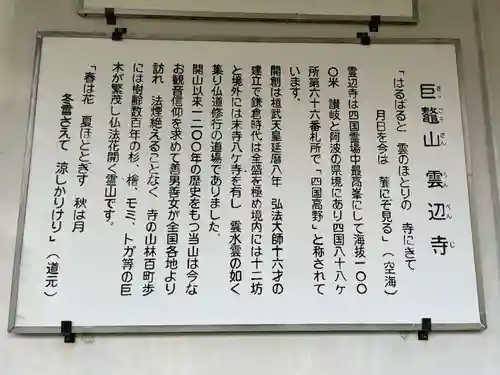 巨鼇山 雲辺寺
きょごうざん うんぺんじ
「はるばると 雲のほとりの 寺にきて
月日を今は 麓にぞ見る」（空海）
雲辺寺は四国霊場中最高峯にして海抜一〇〇
〇米 讃岐と阿波の県境にあり四国八十八ヶ
所第六十六番札所で「四国高野」と称されて
います。
開創は桓武天皇延暦八年 弘法大師十六才の
建立で鎌倉時代は全盛を極め境内には十二坊
と境外には末寺八ヶ寺を有し 雲水雲の如く
集り仏道修行の道場でありました。
開山以来一二〇〇年の歴史をもつ当山は今な
お観音信仰を求めて善男善女が全国各地より
訪れ 法煙絶えることなく 寺の山林百町歩
には樹齢数百年の杉、桧、モミ、トガ等の巨
木が繁茂し仏法花開く霊山です。
「春は花 夏ほととぎす 秋は月
冬雪さえて 涼しかりけり」（道元）